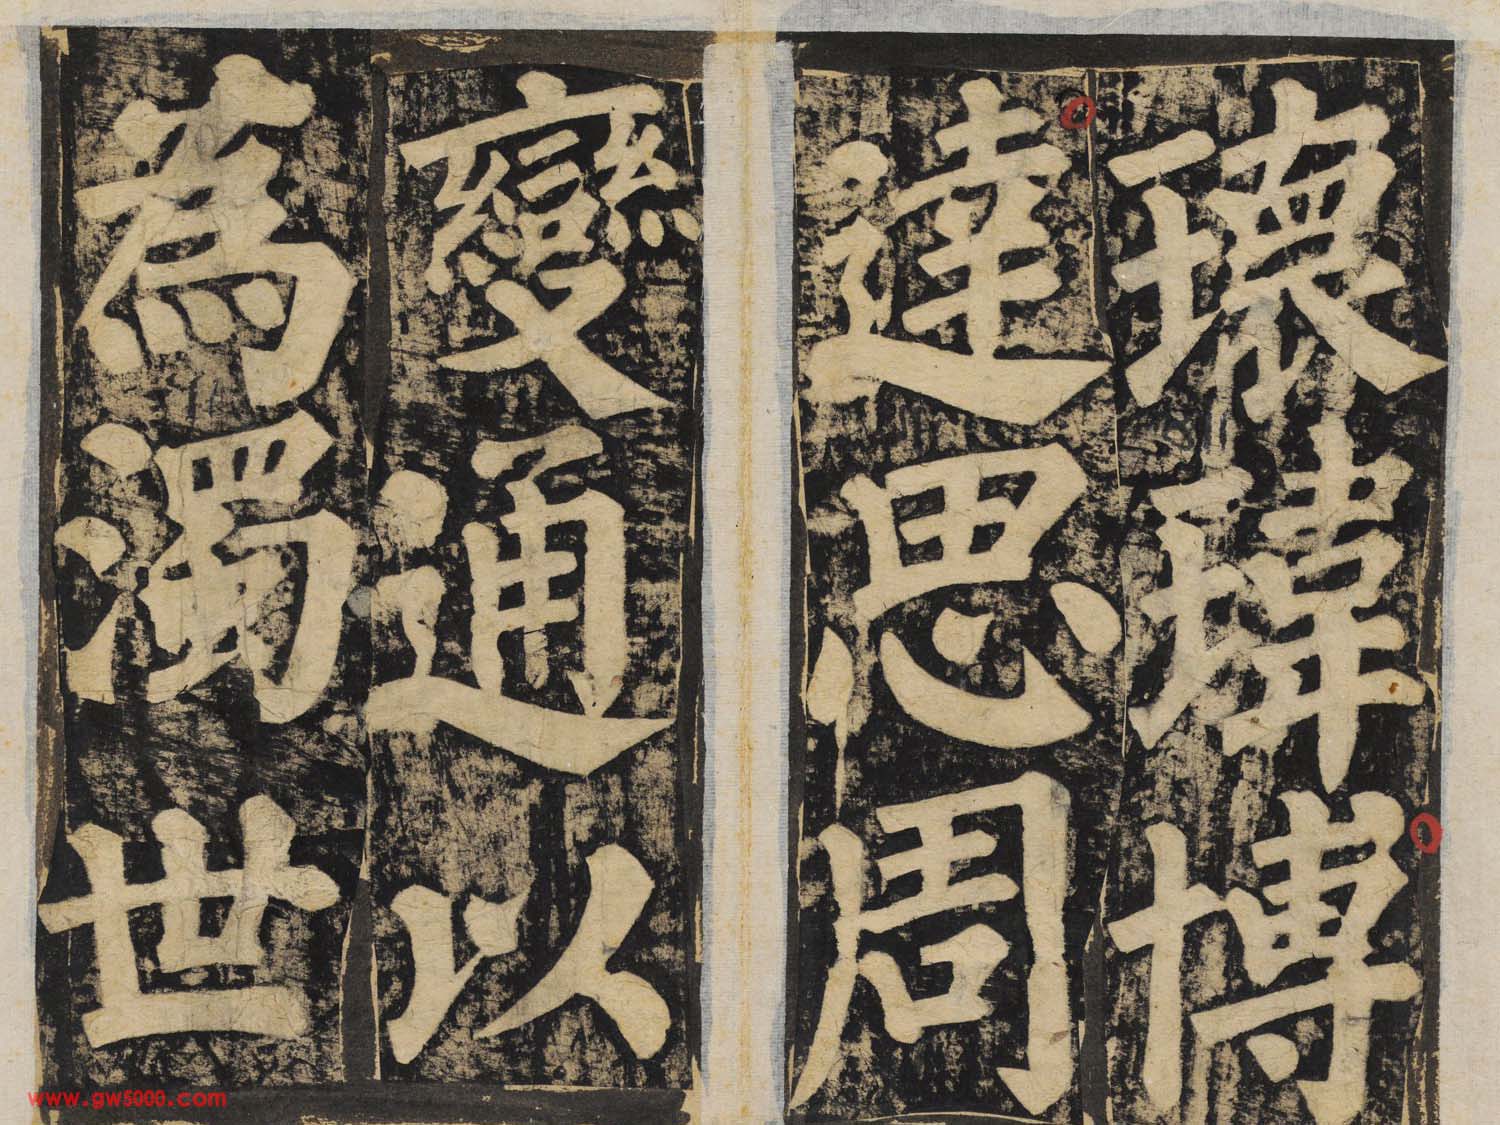 瓌瑋博
達思周
變通以
為濁世
www.gw5000.com